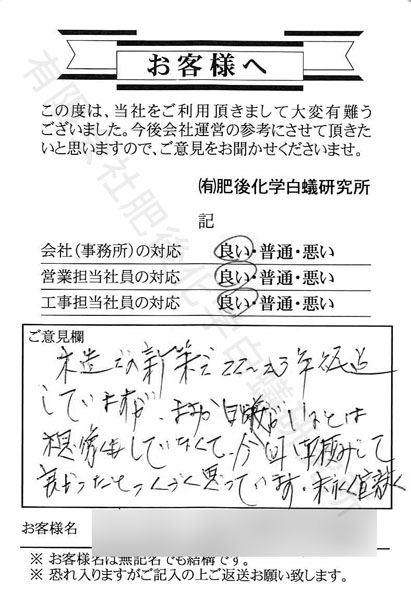 お客様へ
この度は、当社をご利用頂きまして大変有難う
ございました。今後会社運営の参考にさせて頂きた
いと思いますので、ご意見をお聞かせくださいませ。
㈲肥後化学白蟻研究所
記
会社(事務所)の対応 良い・普通・悪い
営業担当社員の対応 良い・普通・悪い
工事担当社員の対応 良い・普通・悪い
ご意見欄
木造での新築で22〜23年経過
していますが、まさか白蟻がいるとは
想像もしていなくて、今回
良かったとつくづく思っています。
お客様名
※ お客様名は無記名でも結構です。
※ 恐れ入りますがご記入の上ご返送お願い致します。
有限会社肥後化学白蟻研究所